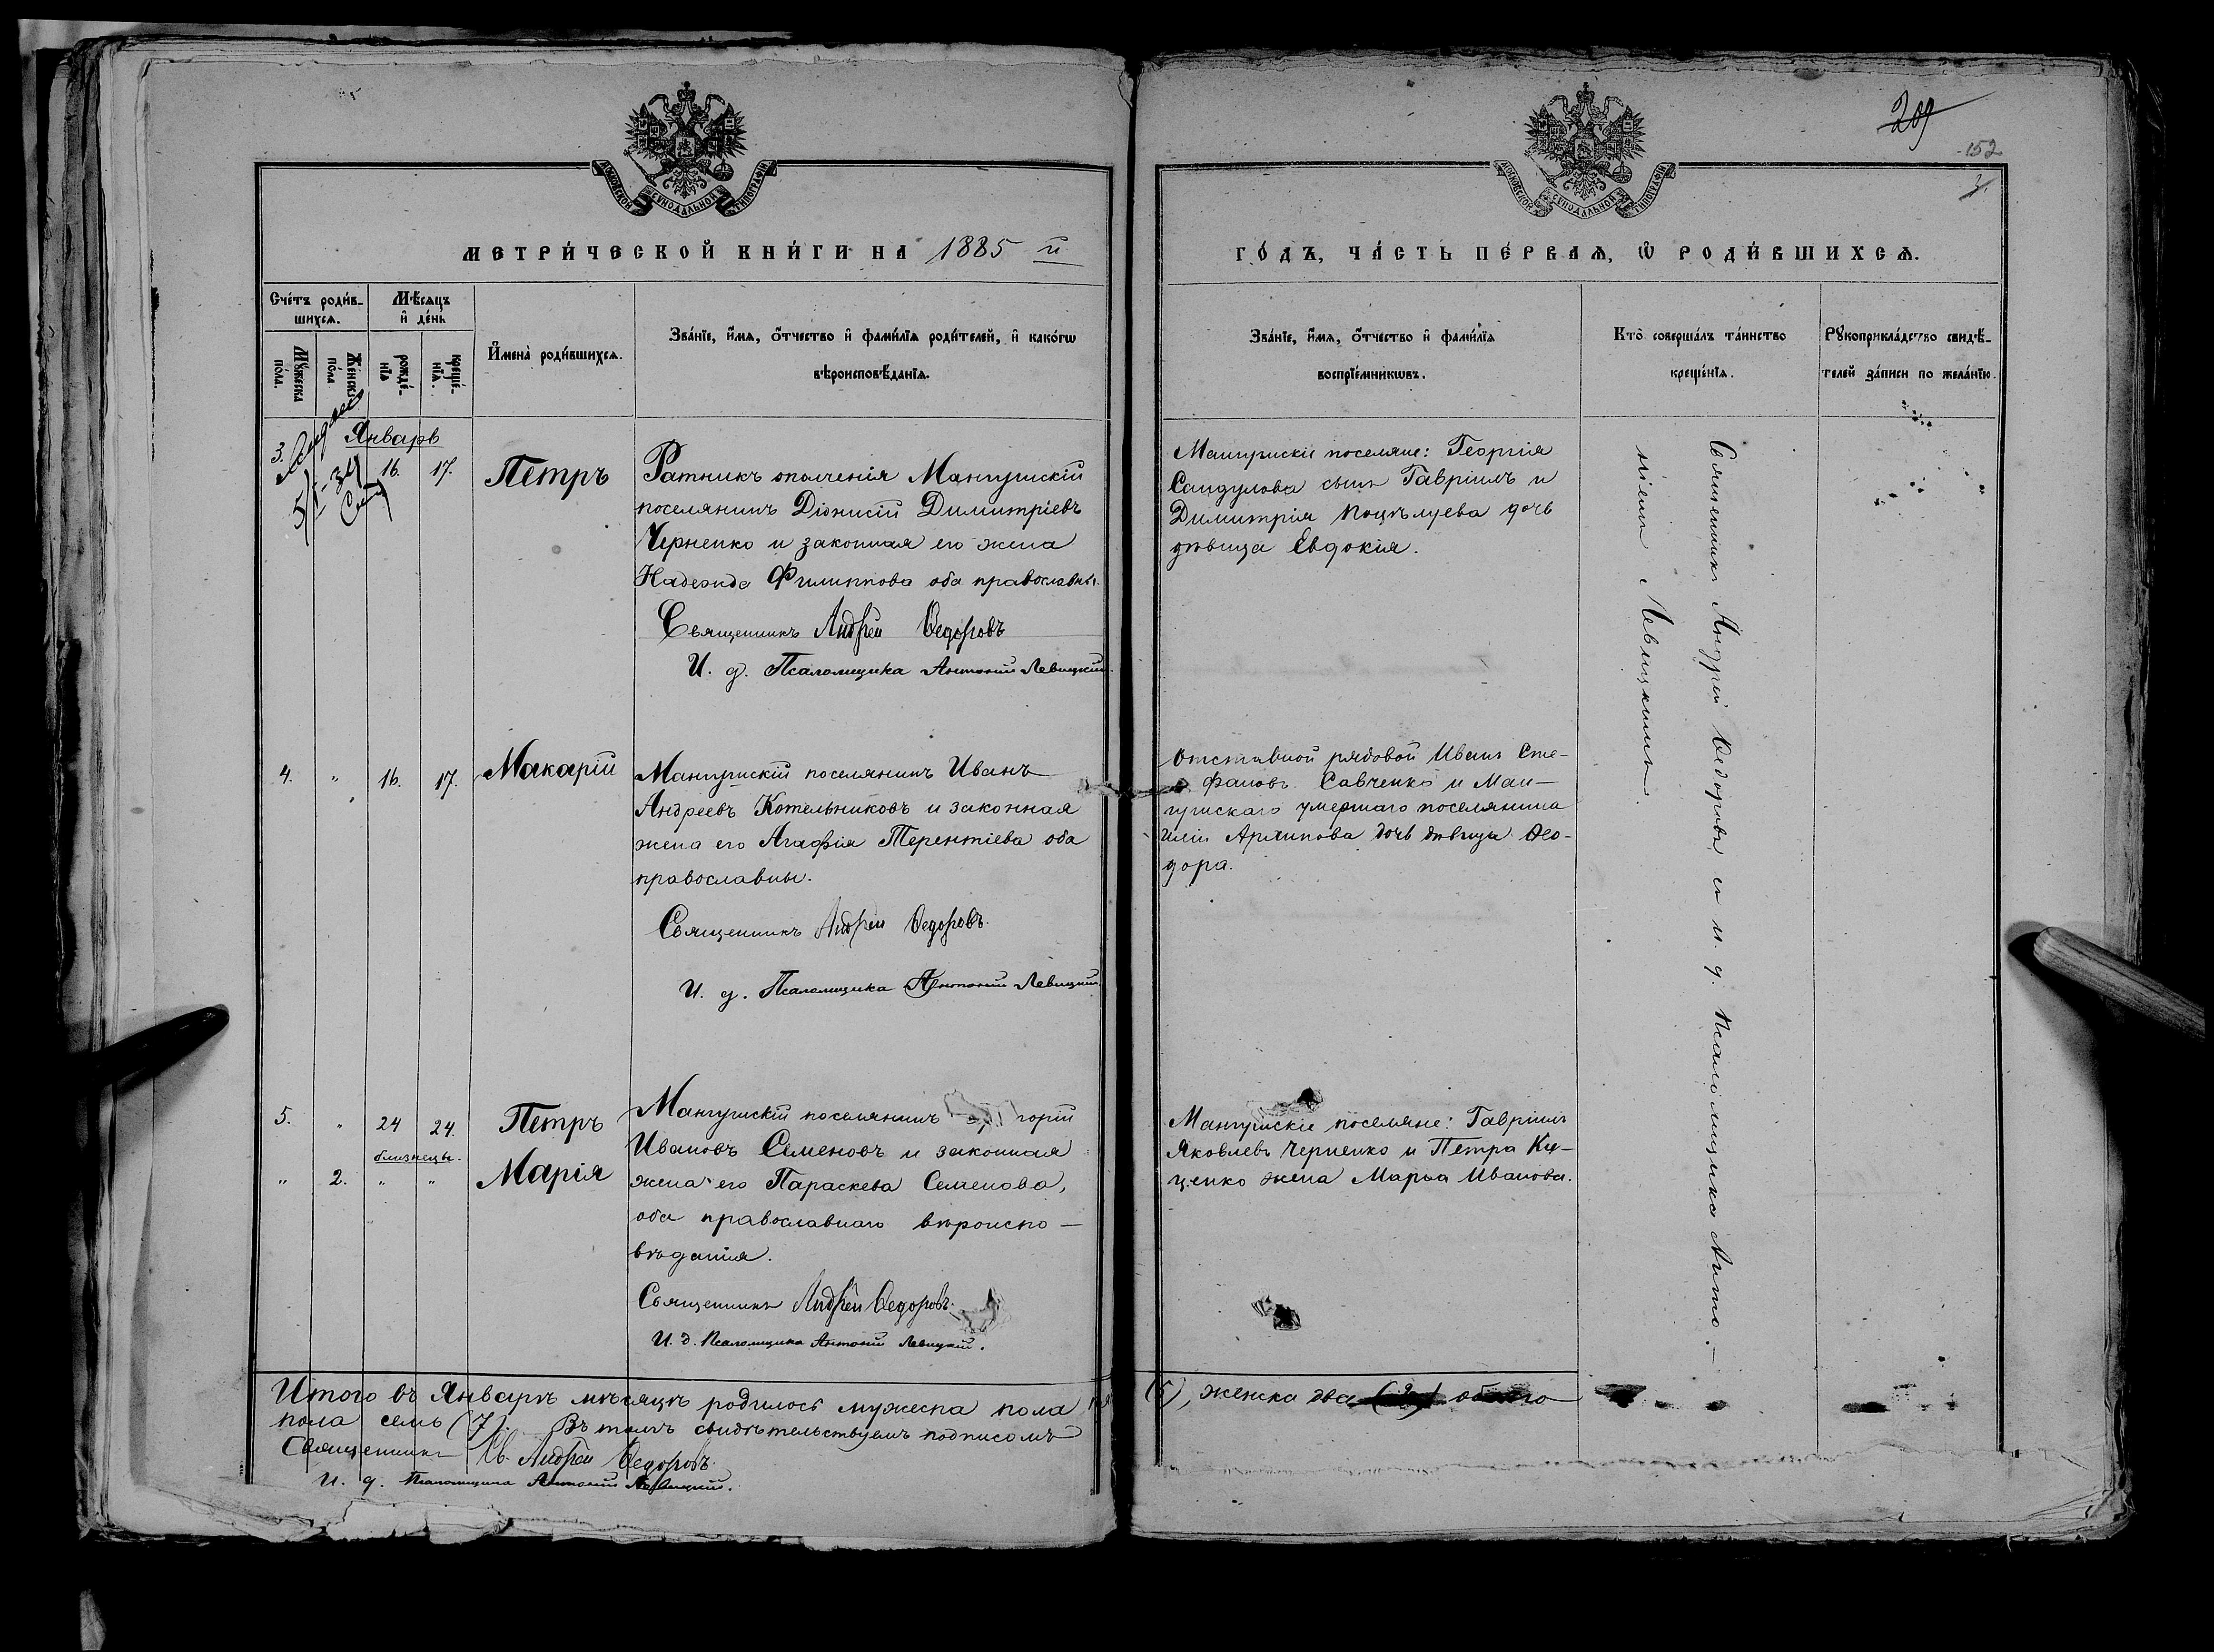 209
152
3.
МОСКОВСКОЙ СѴНОДАЛЬНОЙ ТИПОГРАФІИ
МОСКОВСКОЙ СѴНОДАЛЬНОЙ ТИПОГРАФІИ
МЕТРИ́ЧЕСКОЙ КНИ́ГИ НА 1885 й
ГО́ДЪ, ЧА́СТЬ ПЕ́РВАѦ, Ѿ РОДИ́ВШИХСѦ.
Сче́тъ роди́в-
шихсѧ.
Мѣ́сѧцъ
и҆ де́нь
Мꙋ́жеска
по́ла.
Же́нска
по́ла
рожде́-
нїѧ
креще́-
нїѧ.
И҆мена̀ роди́вшихсѧ.
Зва́нїе, и҆́мѧ, ѻ҆́тчество и҆ фами́лїѧ роди́телей, и҆ како́гѡ
вѣроисповѣ́данїѧ.
Зва́нїе, и҆́мѧ, ѻ҆́тчество и҆ фами́лїѧ
воспрїе́мникѡвъ.
Кто̀ соверша́лъ та́инство
креще́нїѧ.
Рꙋкоприкла́дство свидѣ́-
телей за́писи по жела́нїю.
Январь
3. 16. 17. Петръ
Ратникъ ополченія Мангушскій
поселянинъ Діонисій Димитріевъ
Черненко и законная его жена
Надежда Филиппова оба православны.
Священникъ Андрей Ѳедоровъ
И. д. Псаломщика Антоній Левицкій.
Мангушскіе поселяне: Георгія
Сандулова сынъ Гавріилъ и
Димитрія Поцѣлуева дочь
дѣвица Евдокія.
Священникъ Андрей Ѳедоровъ съ и. д. Псаломщика Анто-
ніемъ Левицкимъ.
4. " 16. 17. Макарій
Мангушскій поселянинъ Иванъ
Андреевъ Котельниковъ и законная
жена его Агафія Терентіева оба
православны.
Священникъ Андрей Ѳедоровъ.
И. д. Псаломщика Антоній Левицкій.
Отставной рядовой Иванъ Сте-
фановъ Савченко и Ман-
гушскаго умершаго поселянина
Иліи Архипова дочь дѣвица Ѳео-
дора.
5. " 24 24. Петръ
близнецы.
" 2. " " Марія
Мангушскій поселянинъ горій
Ивановъ Семеновъ и законная
жена его Параскева Семенова,
оба православнаго вѣроиспо-
вѣданія.
Священникъ Андрей Ѳедоровъ.
И. д. Псаломщика Антоній Левицкій.
Мангушскіе поселяне: Гавріилъ
Яковлевъ Черненко и Петра Ку-
ценко жена Марѳа Иванова.
Итого въ Январѣ мѣсяцѣ родилось мужеска пола (5), женска два (2) обоего
пола семь (7). Въ томъ свидѣтельствуемъ подписомъ
Священникъ Св. Андрей Ѳедоровъ.
И. д. Псаломщика Антоній Левицкій.